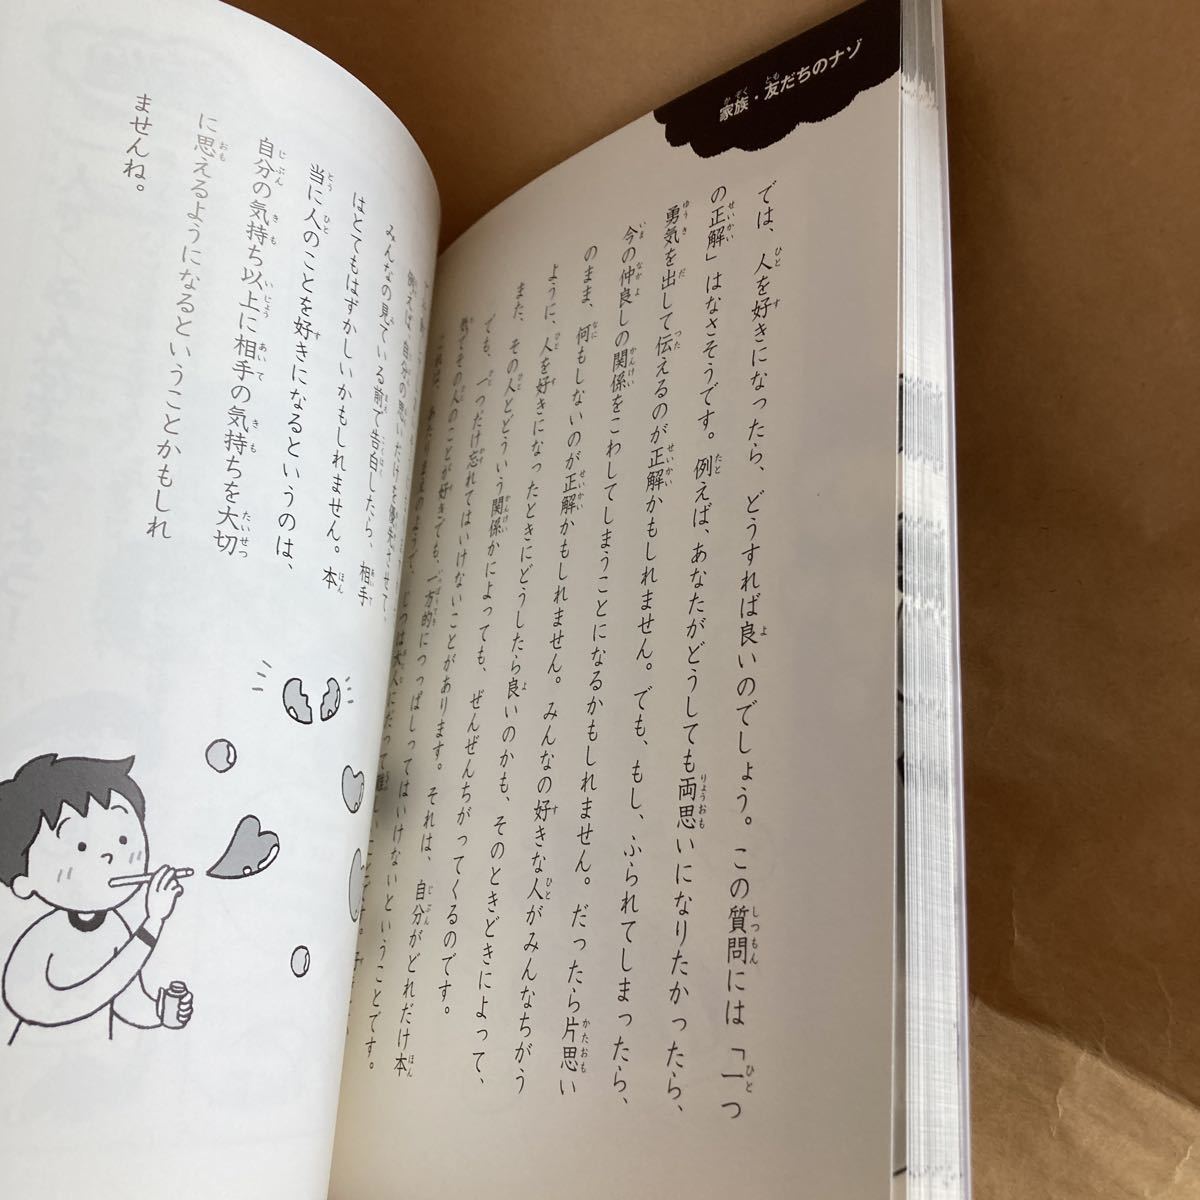 家族・友だちのナゾ
では、人を好きになったら、どうすれば良いのでしょう。この質問には「一つ
の正解」はなさそうです。例えば、あなたがどうしても両思いになりたかったら、
勇気を出して伝えるのが正解かもしれません。でも、もし、ふられてしまったら、
今の仲良しの関係をこわしてしまうことになるかもしれません。だったら片思い
のまま、何もしないのが正解かもしれません。みんなの好きな人がみんなちがう
ように、人を好きになったときにどうしたら良いのかも、そのときどきによって、
また、その人とどういう関係かによっても、ぜんぜんちがってくるのです。
でも、一つだけ忘れてはいけないことがあります。それは、自分がどれだけ本
気でその人のことが好きでも、一方的につっぱしってはいけないということです。
これは、あたりまえのようで、じつは大人にだって難しいことです。
例えば、自分の思いだけを優先させて、
みんなの見ている前で告白したら、相手
はとてもはずかしいかもしれません。本
当に人のことを好きになるというのは、
自分の気持ち以上に相手の気持ちを大切
に思えるようになるということかもしれ
ませんね。